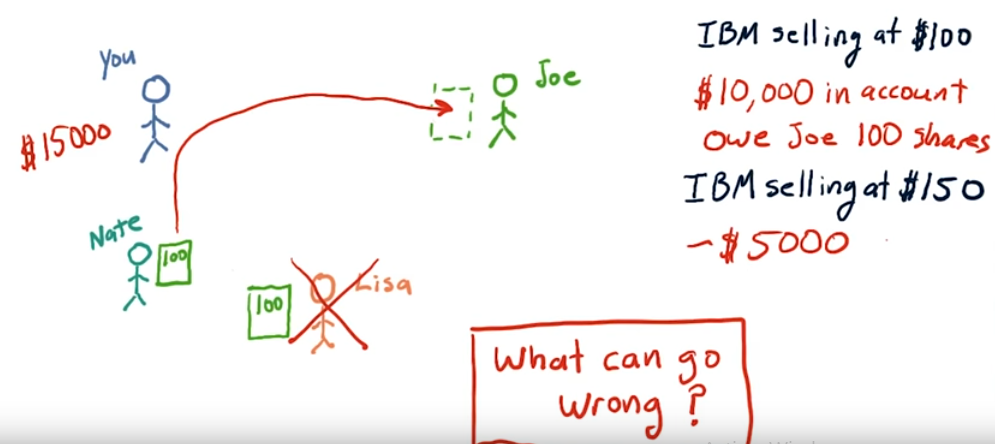 You
Joe
$15000
Nate
100
100
Lisa
IBM selling at $100
$10,000 in account
owe Joe 100 shares
IBM selling at $150
-$5000
What can go
wrong?